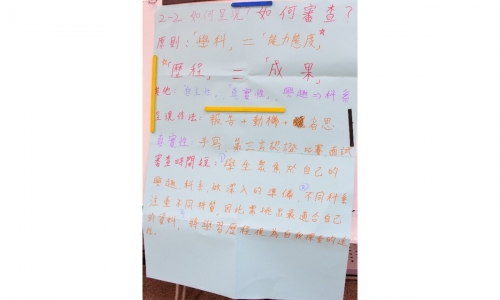 2-2 如何呈現? 如何審查?
原則:「學科」=「能力態度」
「歷程」=「成果」
其他:「自主性」「真實性」 興趣⇒科系
呈現作法: 報告+動機+省思
真實性: 手寫、第三方認證、比賽、面試
審查時間短: ① 學生聚焦於自己的
興趣科系做深入的準備 ② 不同科系
注重不同特質,因此需挑出最適合自己
的資料, 將學習歷程視為自我探索的途
徑。